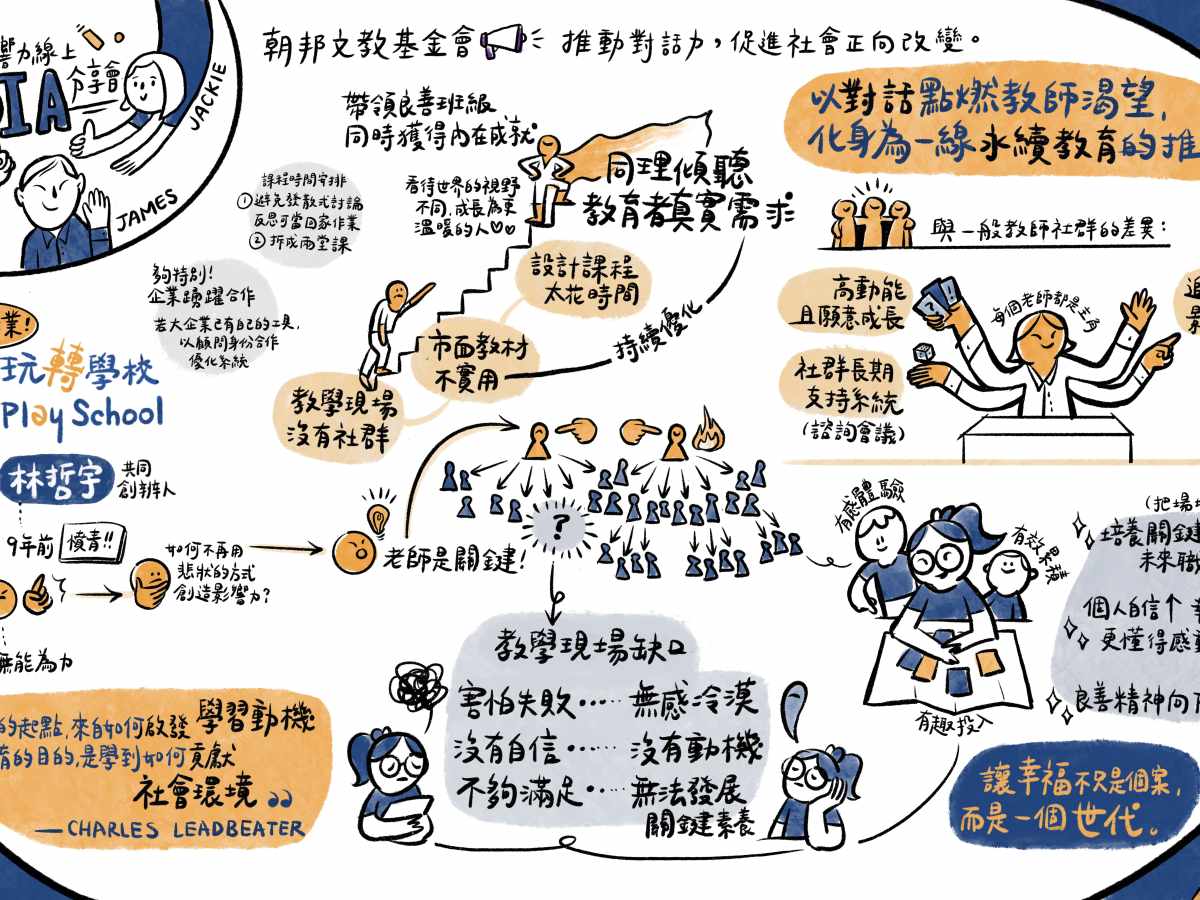 響力線上
IA
分享會
JACKIE
JAMES
朝邦文教基金會
推動對話力，促進社會正向改變。
帶領良善班級
同時獲得內在成就
課程時間安排
①避免發散式討論
反思可當回家作業
②拆成兩堂課
看待世界的視野
不同,成長為更
溫暖的人
同理傾聽
教育者真實需求
夠特別!
企業踴躍合作
若大企業已有自己的工具,
以顧問身份合作
優化系統
設計課程
太花時間
市面教材
不實用
教學現場
沒有社群
持續優化
以對話點燃教師渴望,
化身為一線永續教育的推
與一般教師社群的差異:
高動能
且願意成長
社群長期
支持系統
(諮詢會議)
每個老師都是主角
業!
玩轉學校
Play School
林哲宇
共同
創辦人
9年前
憤青!!
如何不再用
悲狀的方式
創造影響力?
無能為力
老師是關鍵!
?
教學現場缺口
害怕失敗····· 無感冷漠
沒有自信····· 沒有動機
不夠滿足····· 無法發展
關鍵素養
有感體驗
有效累積
有趣投入
(把場
培養關鍵
未來職
個人自信↑
更懂得感
良善精神向
的起點,來自如何啟發 學習動機
育的目的,是學到如何貢獻
社會環境
— CHARLES LEADBEATER
讓幸福不只是個案,
而是一個世代。